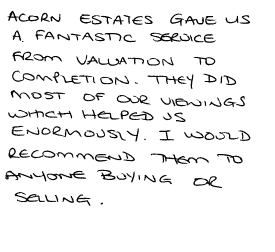 ACORN ESTATES GAVE US
A FANTASTIC SERVICE
FROM VALUATION TO
COMPLETION. THEY DID
MOST OF OUR VIEWINGS
WHICH HELPED US
ENORMOUSLY. I WOULD
RECOMMEND THEM TO
ANYONE BUYING OR
SELLING.